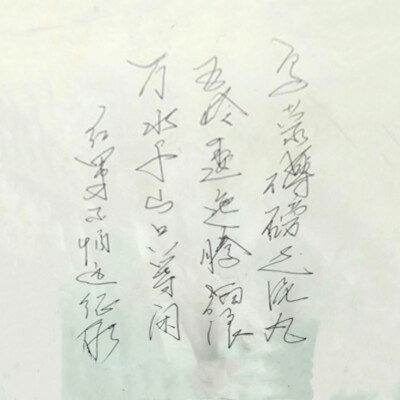 红军不怕远征难
万水千山只等闲
五岭逶迤腾细浪
乌蒙礴磅走泥丸